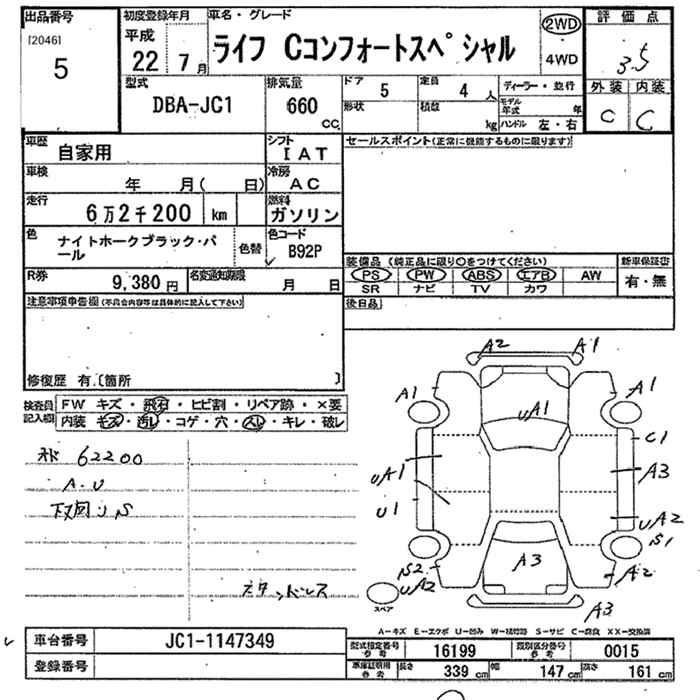 出品番号
[2046]
5
初度登録年月
平成
22 7月
車名・グレード
ライフ Cコンフォートスペシャル
2WD
4WD
評価点
3.5
外装 内装
C C
型式
DBA-JC1
排気量
660
CC
ドア 5 定員 4 人
形状 積数 kg
ディーラー・並行
モデル年式 年
ハンドル 左・右
車歴
自家用
シフト
IAT
車検
年 月( 日)
冷房
AC
走行
6万2千200 km
燃料
ガソリン
色
ナイトホークブラック・パール
色替
色コード
B92P
R券
9,380 円
名変通知期限
月 日
セールスポイント(正常に機能するものに限ります)
装備品(純正品に限り○をつけてください)
PS PW ABS エアB AW
SR ナビ TV カワ
新車保証書
有・無
後日品
注意事項申告欄(不具合内容等は具体的に記入して下さい)
修復歴 有.〔箇所 〕
検査員記入欄
FW キズ・飛石・ヒビ割・リペア跡・×要
内装 キズ・汚レ・コゲ・穴・スレ・キレ・破レ
62200
A.U
下回り S
スタッドレス
A2 A1
A1 A1
UA1
C1
UA1 A3
U1 UA2
S1
S2 A3 A2
UA2
スペア
A3
A-キズ E-エクボ U-凹み W-補修跡 S-サビ C-腐食 XX-交換済
車台番号 JC1-1147349
登録番号
型式指定番号 参考 16199 類別区分番号 参考 0015
車庫証明用 参考 長さ 339 cm 幅 147 cm 高さ 161 cm